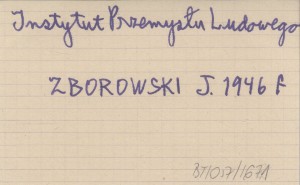 Instytut Przemysłu Ludowego
ZBOROWSKI J. 1946 f
BT1057/1671